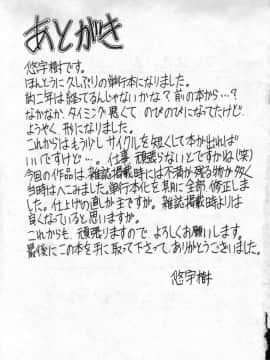 あとがき
悠宇樹です。
ほんとうに久しぶりの単行本になりました。
約二年は経ってるんじゃないかな？前の本から…？
なかなか、タイミング悪くて のびのびになってたけど、
ようやく、形になりました。
これからはもう少しサイクルを短くして本が出れば
いいですけど…。仕事 頑張らないとですかね(笑)
今回の作品は、雑誌掲載時には不満が残る物が多く
当時はへこみました。単行本化を期に全部、修正しま
した。仕上げの直しが主ですが。雑誌掲載時よりは
良くなっていると思いますが。
これからも、頑張りますので、よろしくお願いします。
最後にこの本を手に取って下さって、ありがとうございました。
悠宇樹